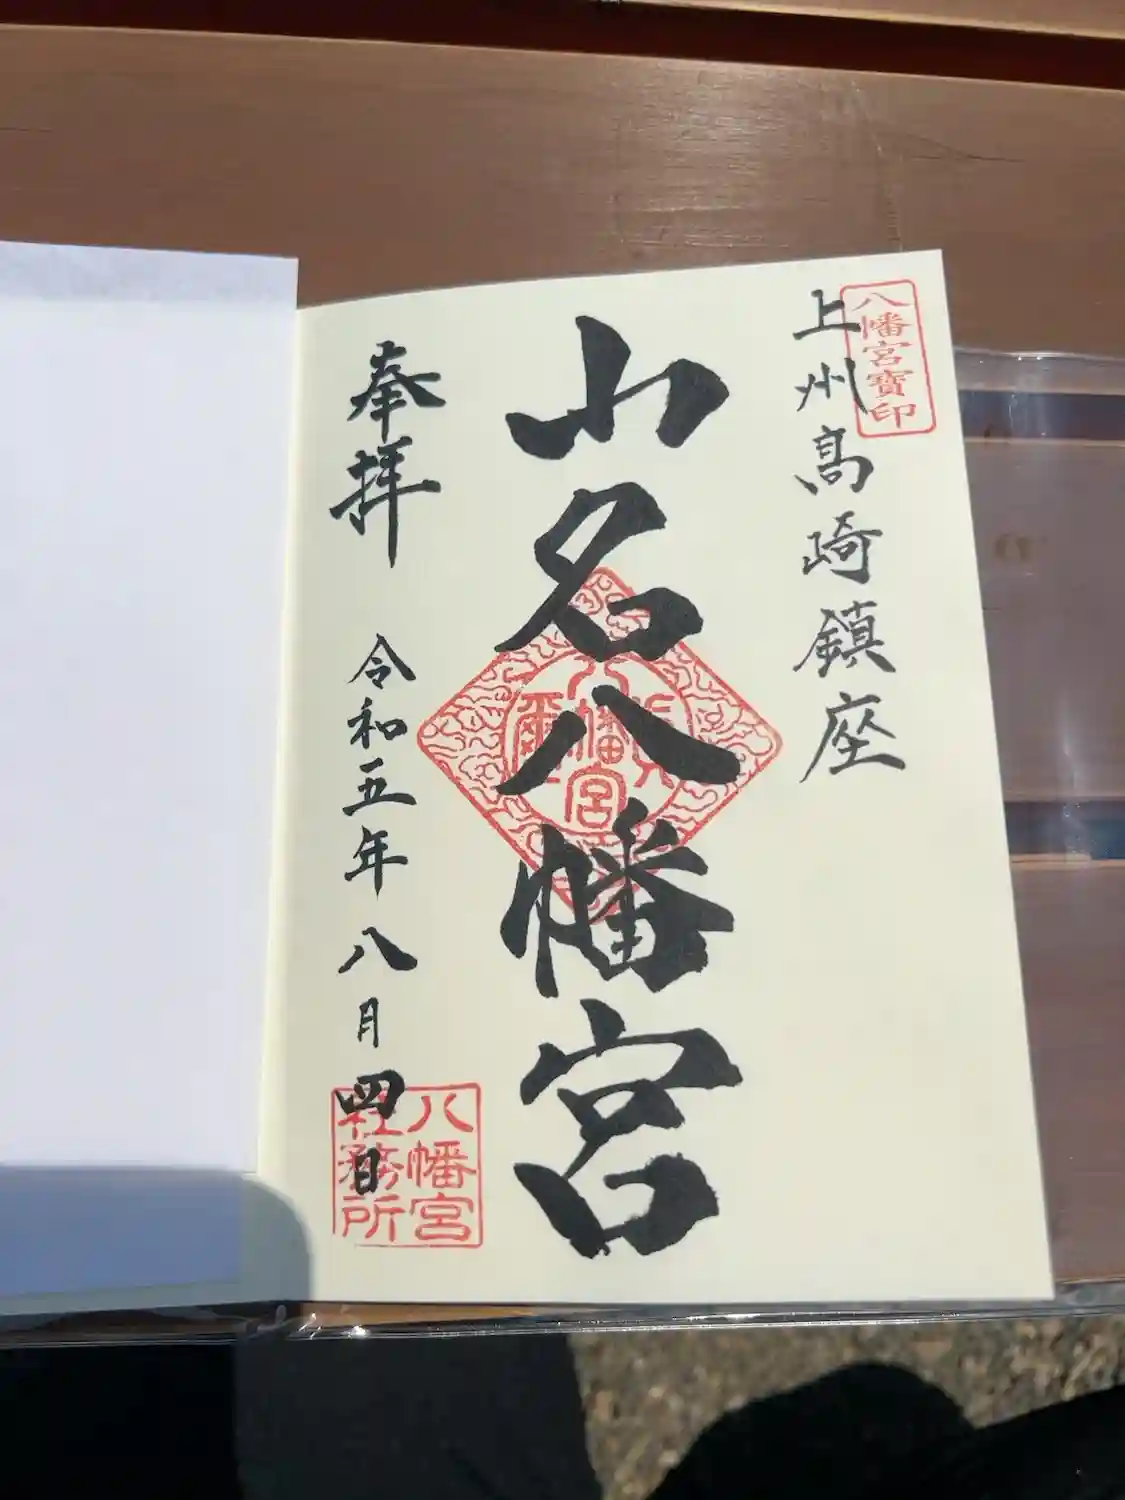 八幡宮寶印
上州高崎鎮座
山名八幡宮
八幡宮
奉拝
令和五年八月四日
八幡宮
社務所